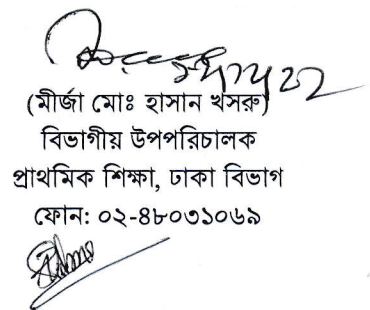 (মীর্জা মোঃ হাসান খসরু)
বিভাগীয় উপপরিচালক
প্রাথমিক শিক্ষা, ঢাকা বিভাগ
ফোন: ০২-৪৮০৩১০৬৯